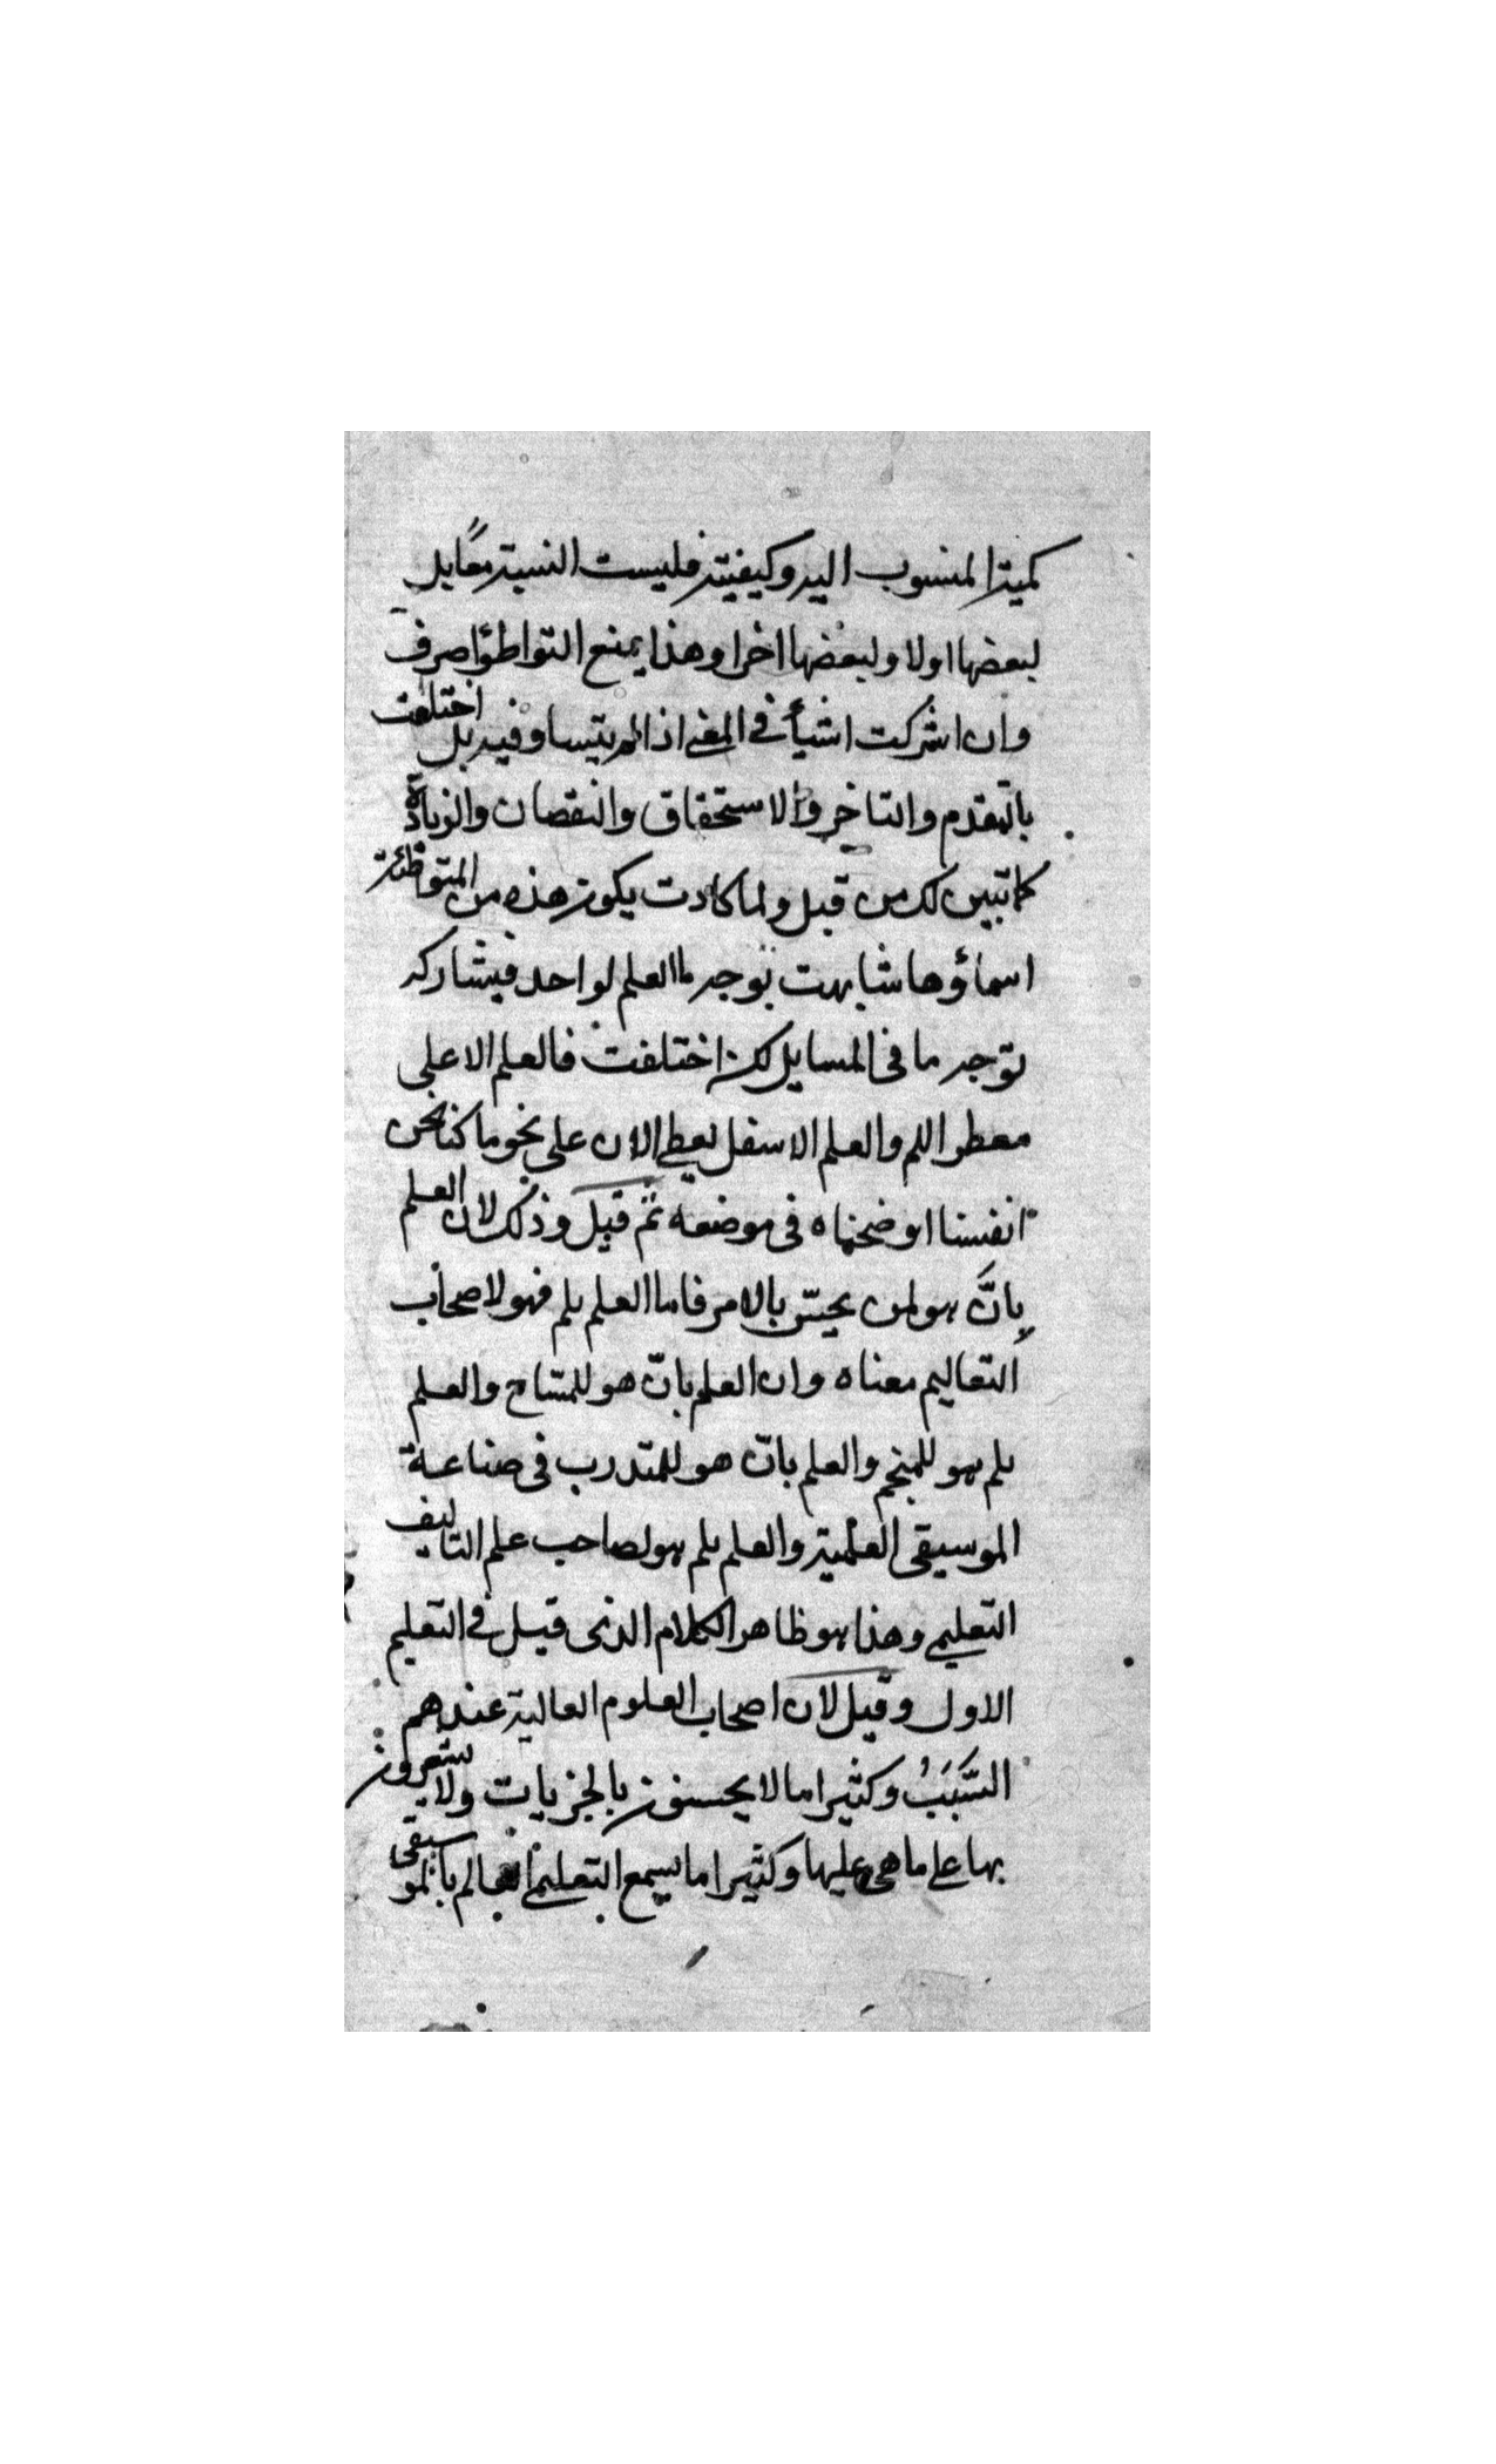 كمية المنسوب اليه وكيفيته فليست النسبة معًا بل
لبعضها اولا ولبعضها اخرا وهذا يمنع التواطؤ الصرف
وان اشركت اشيأ في المعنى اذا لم يتساو فيه بل اختلفت
بالتقدم والتاخر والاستحقاق والنقصان والزيادة
كما تبين لك من قبل ولما كادت يكون هذه من المتواطئة
اسماؤها شابهت بوجه ما العلم لواحد فيشاركه
بوجه ما في المسايل لكن اختلفت فالعلم الاعلى
معطر اللم والعلم الاسفل يعطي الان على نحو ما كنا نحن
انفسنا اوضحناه في موضعه ثم قيل وذلك لان العلم
بانّ هو لمن يحسّ بالامر فاما العلم بلم فهو لاصحاب
التعاليم معناه وان العلم بانّ هو للمسّاح والعلم
بلم هو للمنجم والعلم بانّ هو للمتدرب في صناعة
الموسيقى العلمية والعلم بلم هو لصاحب علم التاليف
التعليمي وهذا هو ظاهر الكلام الذي قيل في التعليم
الاول وقيل لان اصحاب العلوم العالية عندهم
السَّبَبُ وكثيرا ما لا يحسنون بالجزيات ولا يشعرون
بها على ما هي عليها وكثيرا ما يسمع التعليمي العالم بالموسيقى